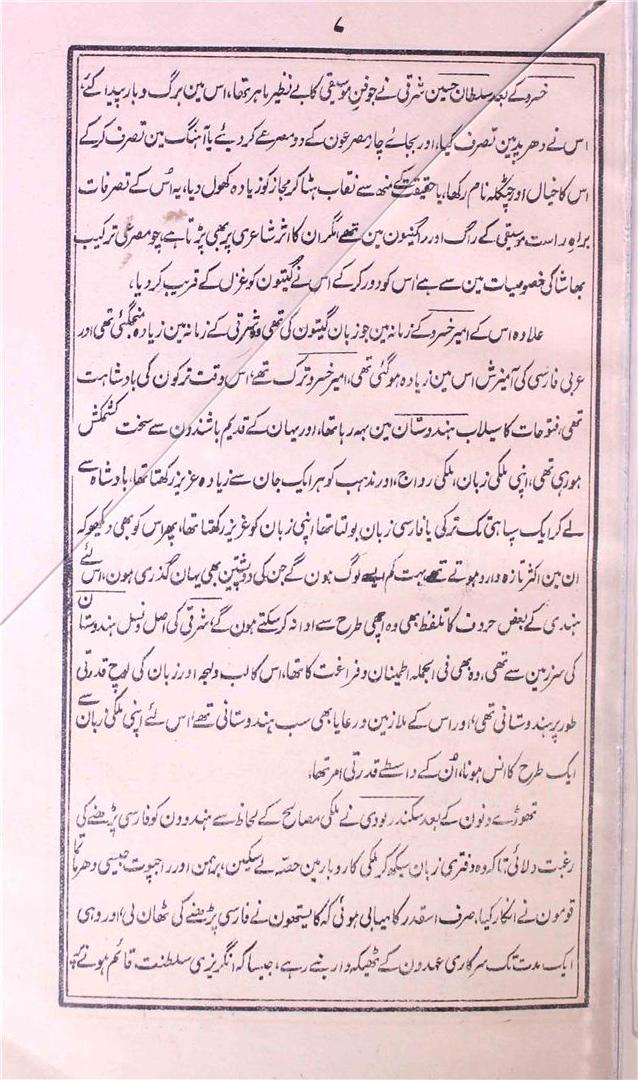 ۷
خسرو کے بعد سلطان حسین شرقی نے جو فن موسیقی کا بے نظیر ماہر تھا، اس مین برگ و بار پیدا کئے،
اس نے دھرپد مین تصرف کیا، اور بجائے چار مصرعون کے دو مصرعے کر دیئے یا آہنگ مین تصرف کر کے
اس کا خیال اور چٹکلہ نام رکھا، یا حقیقت کے منھ سے نقاب ہٹا کر مجاز کو زیادہ کھول دیا، یہ اُس کے تصرفات
براہ راست موسیقی کے راگ اور راگنیون مین تھے مگر ان کا اثر شاعری پر بھی پڑتا ہے، چو مصرعی ترکیب
بھاشا کی خصوصیات مین سے ہے، اس کو دور کر کے اس نے گیتون کو غزل کے قریب کر دیا،
علاوہ اس کے امیر خسرو کے زمانہ مین جو زبان گیتون کی تھی وہ شرقی کے زمانہ مین زیادہ منجھ گئی تھی اور
عربی فارسی کی آمیزش اس مین زیادہ ہو گئی تھی، امیر خسرو ترک تھے، اس وقت ترکون کی بادشاہت
تھی، فتوحات کا سیلاب ہندوستان مین بہہ رہا تھا، اور یہان کے قدیم باشندون سے سخت کشمکش
ہو رہی تھی، اپنی ملکی زبان، ملکی رواج، اور مذہب کو ہر ایک جان سے زیادہ عزیز رکھتا تھا، بادشاہ سے
لے کر ایک سپاہی تک ترکی یا فارسی زبان بولتا تھا اپنی زبان کو عزیز رکھتا تھا، پھر اس کو بھی دیکھو کہ
ان مین اکثر تازہ وارد ہوتے تھے بہت کم ایسے لوگ ہون گے جن کی دو پشتین بھی یہان گذری ہون، اس لئے
ہندی کے بعض حروف کا تلفظ بھی وہ اچھی طرح سے ادا نہ کر سکتے ہون گے، شرقی کی اصل و نسل ہندوستان
کی سرزمین سے تھی، وہ بھی فی الجملہ اطمینان و فراغت کا تھا، اس کا لب و لہجہ اور زبان کی لوچ قدرتی
طور پر ہندوستانی تھی، اور اس کے ملازمین و رعایا بھی سب ہندوستانی تھے، اس لئے اپنی ملکی زبان سے
ایک طرح کا انس ہونا، اُن کے واسطے قدرتی امر تھا،
تھوڑے دنون کے بعد سکندر لودی نے ملکی مصالح کے لحاظ سے ہندوون کو فارسی پڑھنے کی
رغبت دلائی، تاکہ وہ دفتری زبان سیکھ کر ملکی کاروبار مین حصہ لے سکین، برہمن اور راجپوت جیسی دھرماتما
قومون نے انکار کیا، صرف اسقدر کامیابی ہوئی کہ کایستھون نے فارسی پڑھنے کی ٹھان لی، اور وہی
ایک مدت تک سرکاری عہدون کے ٹھیکہ دار بنے رہے، جیسا کہ انگریزی سلطنت قائم ہونے پر